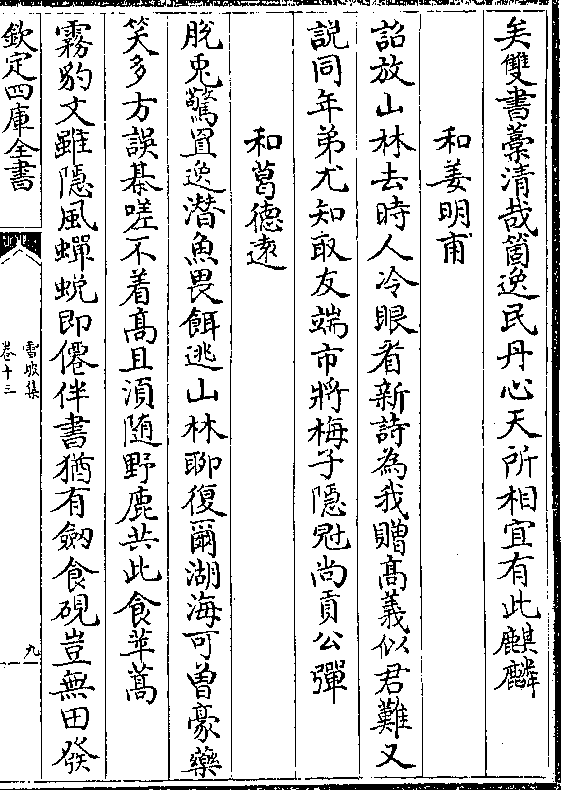 矣雙書藁清哉箇逸民丹心天所相宜有此麒麟
和姜明甫
詔放山林去時人冷眼看新詩為我贈高義似君難又
説同年弟尤知取友端市將梅子隠冠尚貢公彈
和葛德逺
脱兎驚罝逸潛魚畏餌逃山林聊復爾湖海可曽豪藥
笑多方誤棊嗟不着髙且湏随野鹿共此食苹蒿
霧豹文雖隠風蟬蜕即僊伴書猶有劒食硯豈無田發
欽定四庫全書
雪坡集
卷十三
九